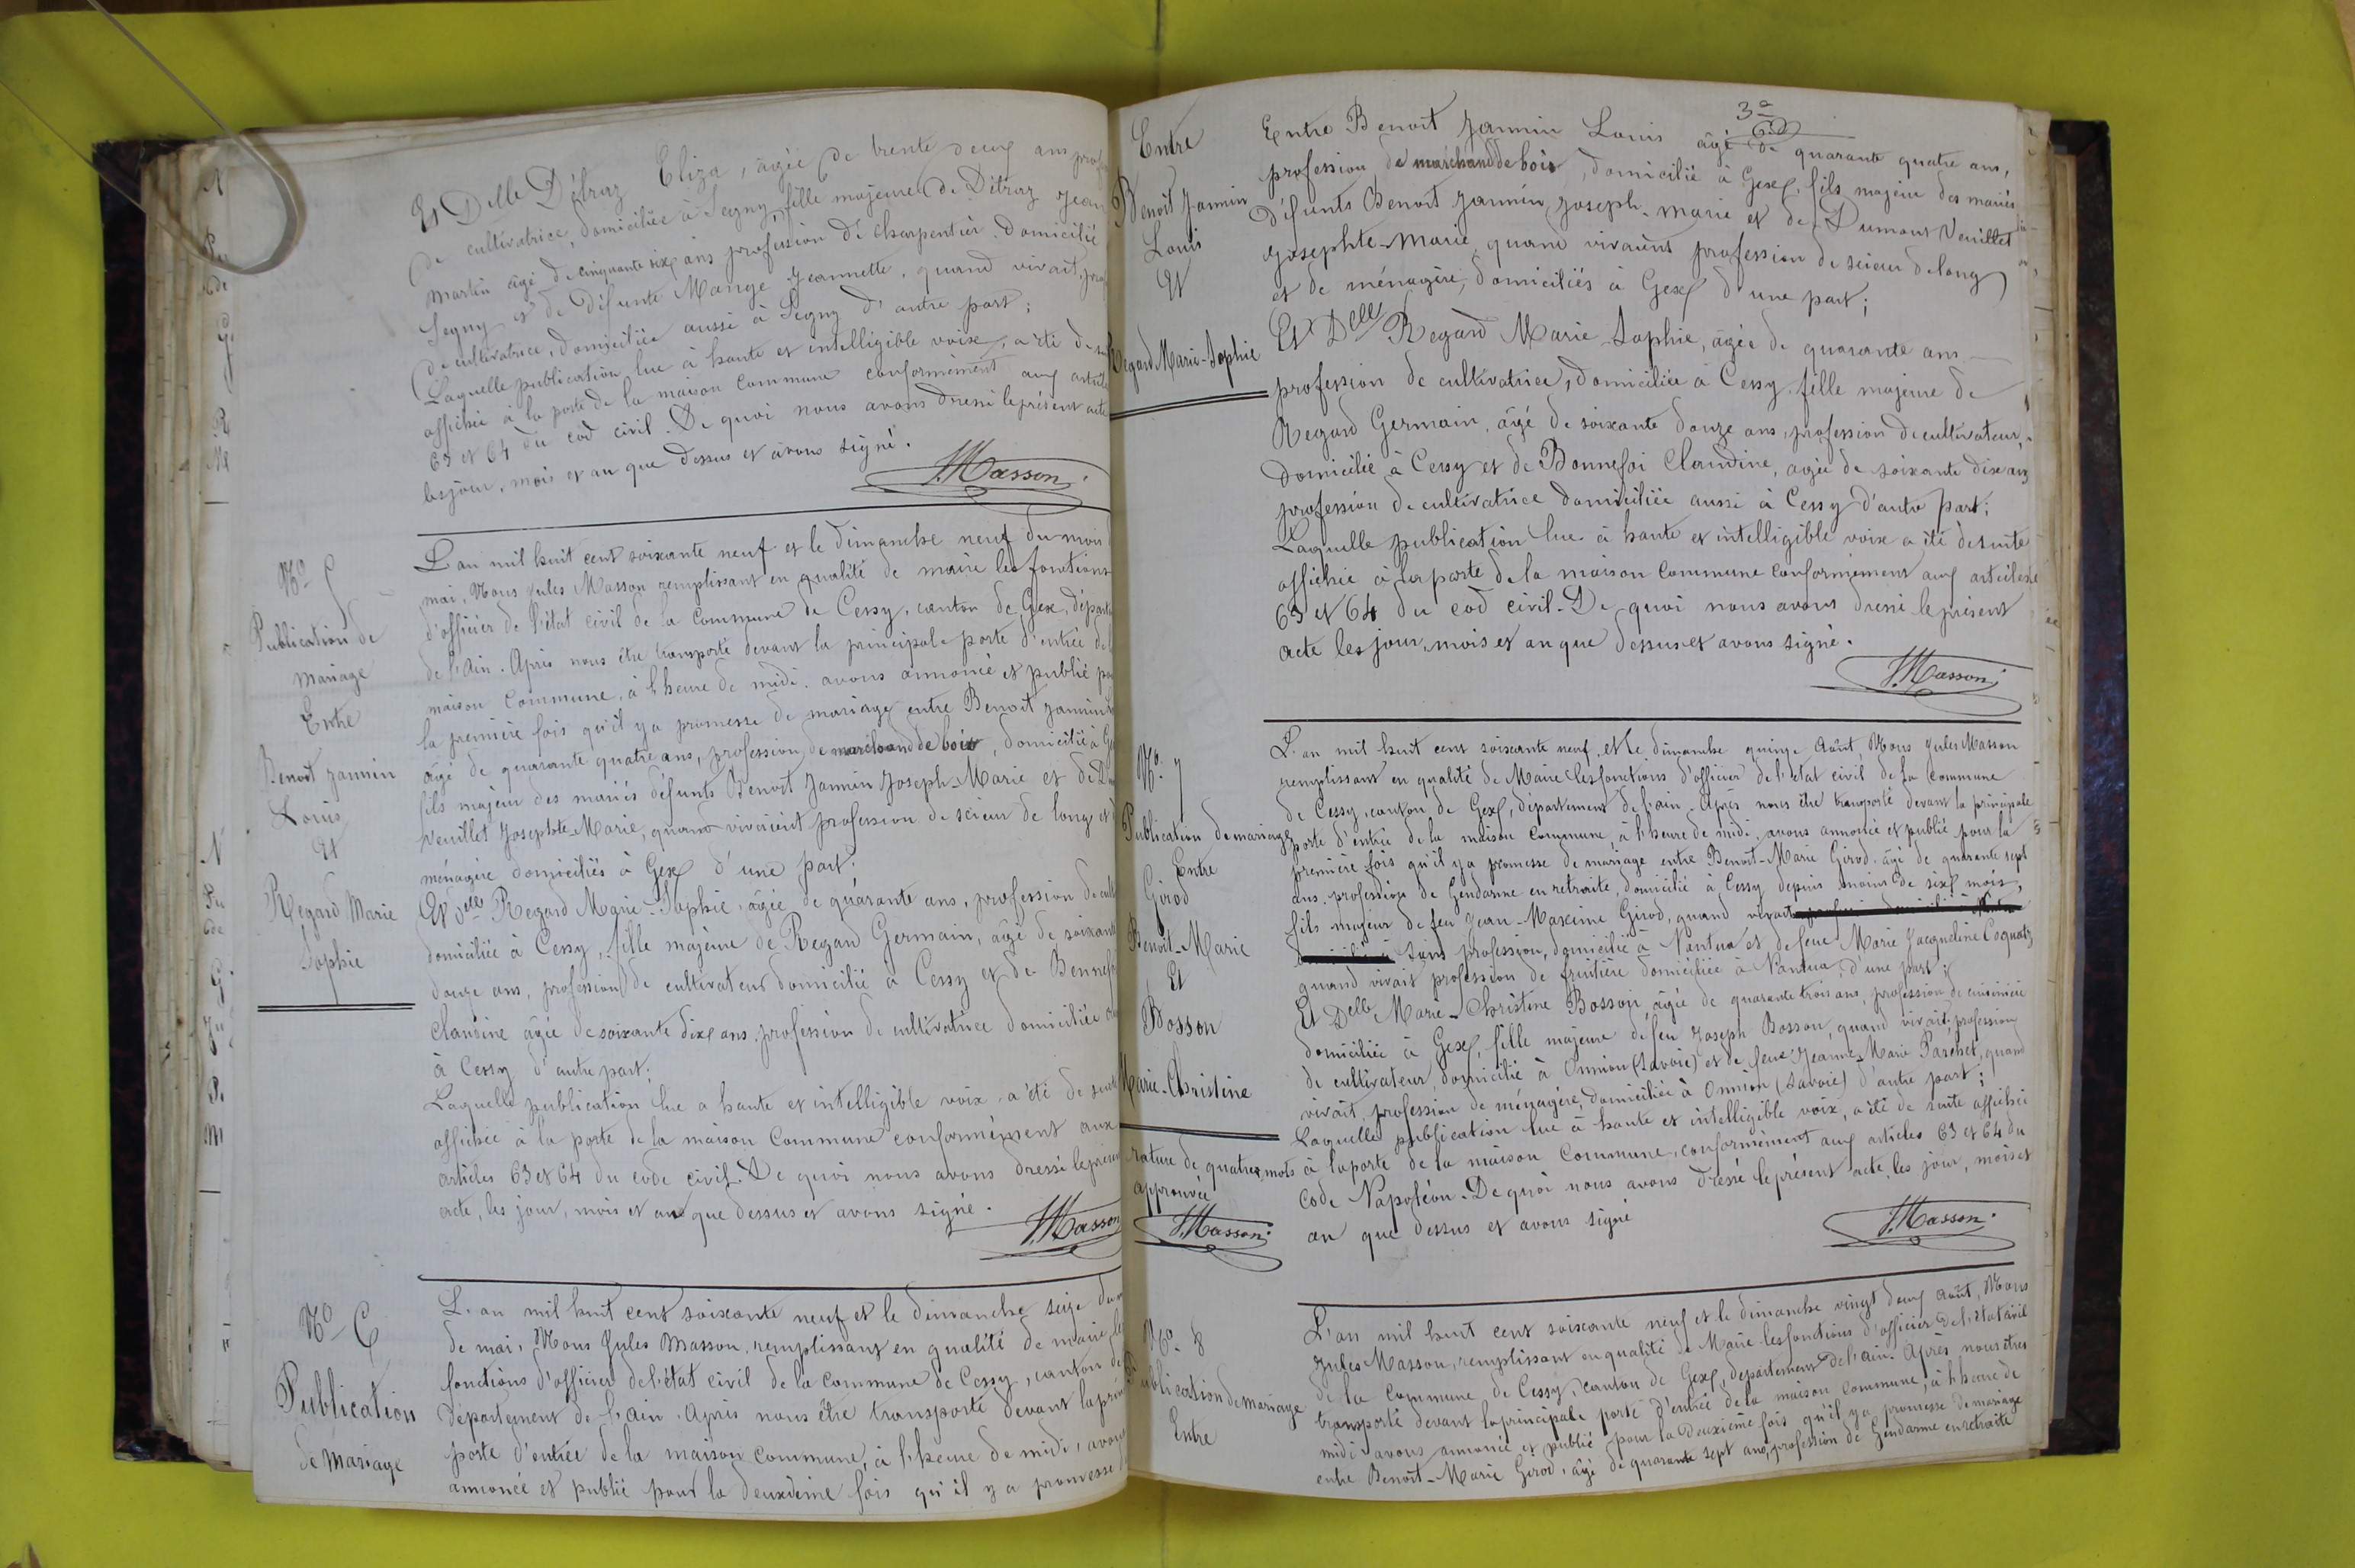 Et Delle Détraz Eliza, agée de trente deux ans
de cultivatrice, domiciliée à Segny, fille majeure de Détraz Jean
Martin âgé de cinquante six ans profession de Charpentier domicilié
Segny et de défunte Mange Jeannette, quand vivait,
de cultivatrice, domiciliée aussi à Segny d'autre part;
Laquelle publication lue à haute et intelligible voix, a été de
affichée à la porte de la maison Commune conformément aux
63 et 64 du cod civil. De quoi nous avons dressé le présent acte
les jour, mois et an que dessus et avons signé.
J. Masson
No 5
Publication de
mariage
Entre
Benoit Jannin
Louis
Et
Regard Marie
Sophie
L'an mil huit cent soixante neuf et le dimanche neuf du mois
mai, Nous Jules Masson remplissant en qualité de maire les fonctions
d'officier de l'état civil de la Commune de Cessy, canton de Gex,
de l'Ain. Après nous être transporté devant la principale porte d'entrée de
maison Commune, à l'heure de midi. avons annoncé et publié
la première fois qu'il y a promesse de mariage entre Benoit Jannin
âgé de quarante quatre ans, profession de marchand de bois, domicilié à
fils majeur des mariés défunts Benoit Jannin Joseph-Marie et de
Veuillet Josephte-Marie, quand vivaient profession de scieur de long et
ménagère domiciliés à Gex d'une part;
Et Delle Regard Marie-Sophie, âgée de quarante ans, profession de
domiciliée à Cessy, fille majeure de Regard Germain, âgé de soixante
douze ans, profession de cultivateur domicilié à Cessy et de
Claudine âgée de soixante dix ans profession de cultivatrice domiciliée
à Cessy d'autre part;
Laquelle publication lue a haute et intelligible voix a été de
affichée à la porte de la maison Commune conformément aux
articles 63 et 64 du code civil. De quoi nous avons dressé le présent
acte, les jour, mois et an que dessus et avons signé.
J. Masson
No 6
Publication
de mariage
L'an mil huit cent soixante neuf et le dimanche seize du
de mai, Nous Jules Masson, remplissant en qualité de maire
fonctions d'officier de l'état civil de la Commune de Cessy, canton de
département de l'Ain. Après nous être transporté devant la
porte d'entrée de la maison commune, à l'heure de midi,
annoncé et publié pour la deuxième fois qu'il y a promesse
Entre
Benoit Jannin
Louis
Et
Regard Marie-Sophie
3e
Entre Benoit Jannin Louis âgé de quarante quatre ans,
profession de marchand de bois, domicilié à Gex, fils majeur des mariés
défunts Benoit Jannin Joseph-Marie et de Dumont Veuillet
Josephte-Marie, quand vivaient profession de scieur de long
et de ménagère, domiciliés à Gex d'une part;
Et Delle Regard Marie-Sophie, âgée de quarante ans
profession de cultivatrice, domiciliée à Cessy fille majeure de
Regard Germain, âgé de soixante douze ans, profession de cultivateur,
domicilié à Cessy et de Bonnefoi Claudine, agée de soixante dix ans
profession de cultivatrice domiciliée aussi à Cessy d'autre part;
Laquelle publication lue à haute et intelligible voix a été de suite
affichée à la porte de la maison Commune conformement aux articles
63 et 64 du cod civil. De quoi nous avons dressé le présent
acte les jour, mois et an que dessus et avons signé.
J. Masson
No. 7
Publication de mariage
Entre
Girod
Benoit-Marie
Et
Bosson
Marie-Christine
rature de quatre mots
approuvée
J. Masson
L'an mil huit cent soixante neuf, et le dimanche quinze Août, Nous Jules Masson
remplissant en qualité de Maire les fonctions d'officier de l'état civil de la commune
de Cessy, canton de Gex, département de l'ain. Après nous être transporté devant la principale
porte d'entrée de la maison Commune, à l'heure de midi, avons annoncé et publié pour la
première fois qu'il y a promesse de mariage entre Benoit-Marie Girod âgé de quarante sept
ans, profession de Gendarme en retraite, domicilié à Cessy depuis moins de six mois,
fils majeur de feu Jean-Maxime Girod, quand vivait
sans profession, domicilié à Nantua et de feue Marie Jacqueline Coquatz
quand vivait profession de fruitière domiciliée à Nantua, d'une part;
Et Delle Marie-Christine Bosson, âgée de quarante trois ans, profession de cuisinière
domiciliée à Gex, fille majeure de feu Joseph Bosson, quand vivait, profession
de cultivateur, domicilié à Onnion (Savoie) et de feue Jeanne-Marie Parchet, quand
vivait, profession de ménagère, domiciliée à Onnion (Savoie) d'autre part;
Laquelle publication lue à haute et intelligible voix, a été de suite affichée
à la porte de la maison Commune, conformément aux articles 63 et 64 du
Code Napoléon. De quoi nous avons dressé le présent acte, les jour, mois et
an que dessus et avons signé
J. Masson.
No. 8
Publication de mariage
Entre
L'an mil huit cent soixante neuf et le dimanche vingt deux Août, Nous
Jules Masson, remplissant en qualité de Maire les fonctions d'officier de l'état civil
de la Commune de Cessy, canton de Gex, département de l'ain. Après nous êtres
transporté devant la principale porte d'entrée de la maison Commune, à l'heure de
midi avons annoncé et publié pour la deuxième fois qu'il y a promesse de mariage
entre Benoît-Marie Girod, âgé de quarante sept ans, profession de Gendarme en retraite